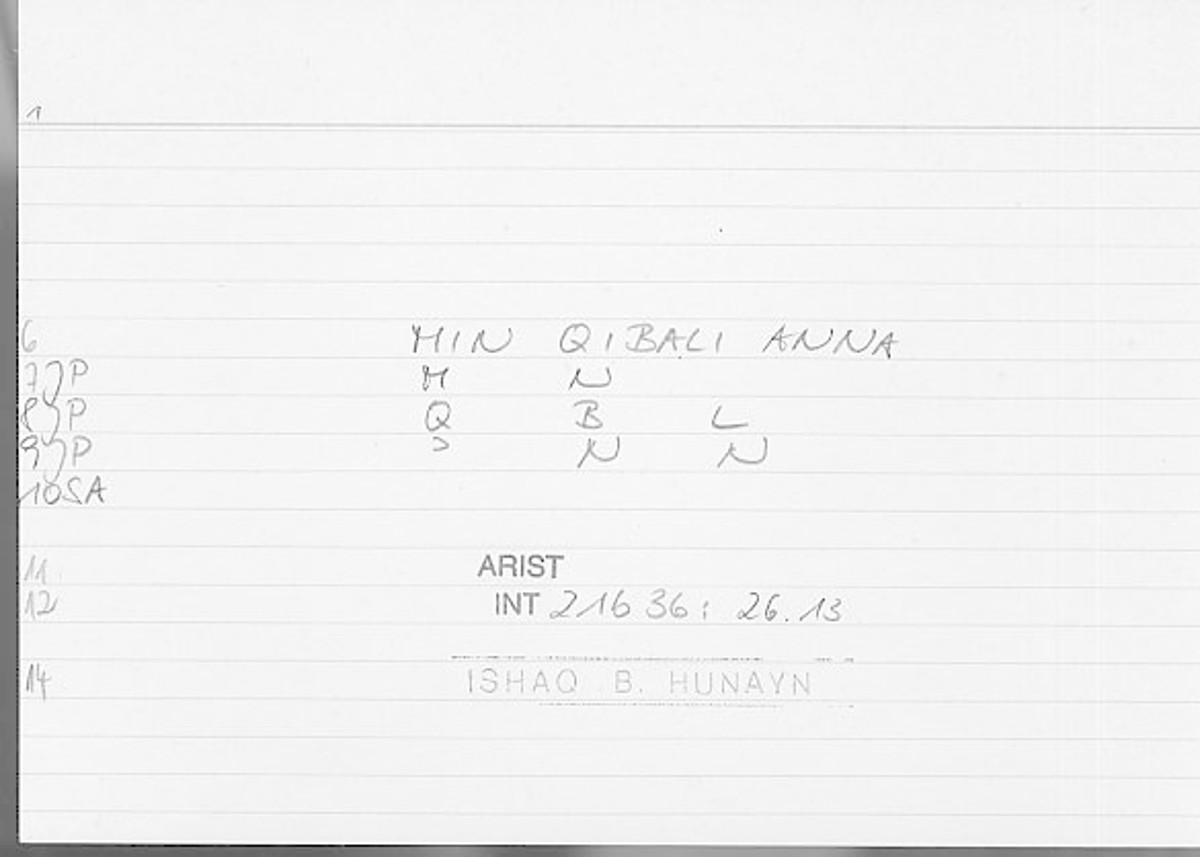 1
6 MIN QIBALI ANNA
7JP M N
8JP Q B L
9JP Ɔ N N
10SA
11
ARIST
12 INT 21b 36; 26.13
14 ISHAQ B. HUNAYN